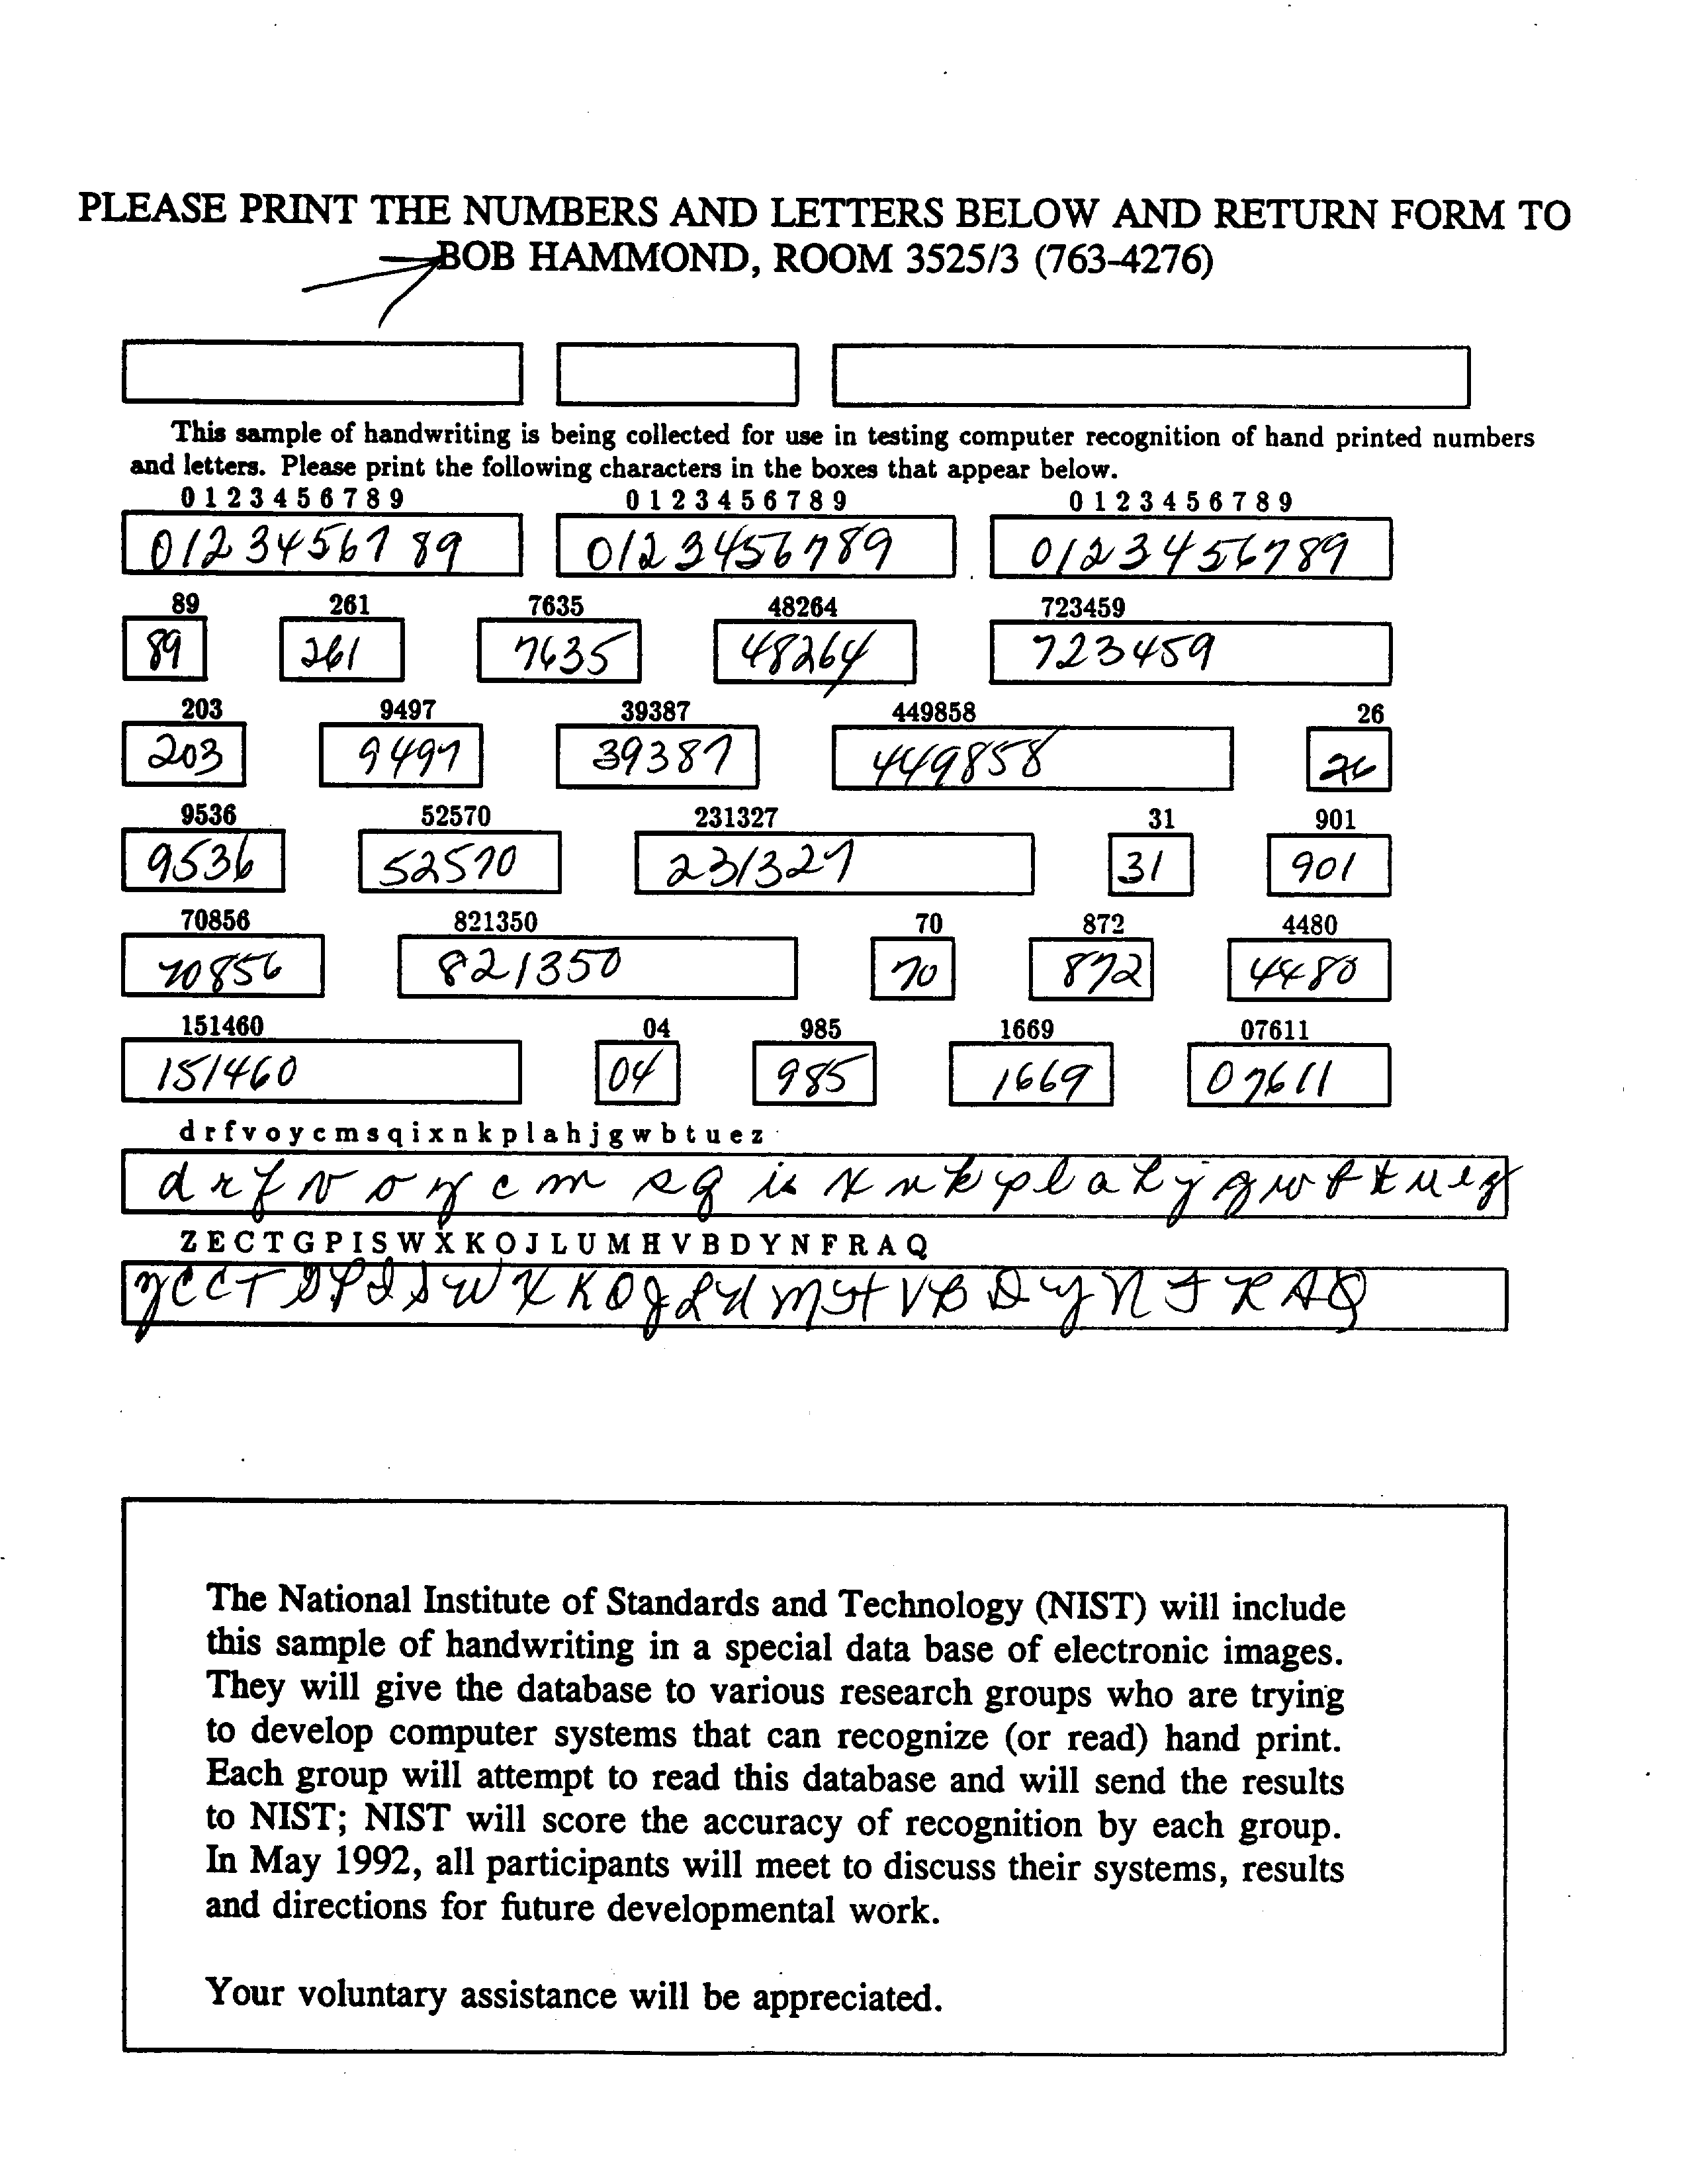 PLEASE PRINT THE NUMBERS AND LETTERS BELOW AND RETURN FORM TO
BOB HAMMOND, ROOM 3525/3 (763-4276)
This sample of handwriting is being collected for use in testing computer recognition of hand printed numbers
and letters. Please print the following characters in the boxes that appear below.
0 1 2 3 4 5 6 7 8 9 0 1 2 3 4 5 6 7 8 9 0 1 2 3 4 5 6 7 8 9
0123456789 0123456789 0123456789
89 261 7635 48264 723459
89 261 7635 48264 723459
203 9497 39387 449858 26
203 9497 39387 449858 26
9536 52570 231327 31 901
9536 52570 231327 31 901
70856 821350 70 872 4480
70856 821350 70 872 4480
151460 04 985 1669 07611
151460 04 985 1669 07611
d r f v o y c m s q i x n k p l a h j g w b t u e z
d r f v o y c m s q i s x n k p l a h j g w b t u e z
Z E C T G P I S W X K O J L U M H V B D Y N F R A Q
Z E C T G P I S W X K O J L U M H V B D Y N F R A Q
The National Institute of Standards and Technology (NIST) will include
this sample of handwriting in a special data base of electronic images.
They will give the database to various research groups who are trying
to develop computer systems that can recognize (or read) hand print.
Each group will attempt to read this database and will send the results
to NIST; NIST will score the accuracy of recognition by each group.
In May 1992, all participants will meet to discuss their systems, results
and directions for future developmental work.
Your voluntary assistance will be appreciated.